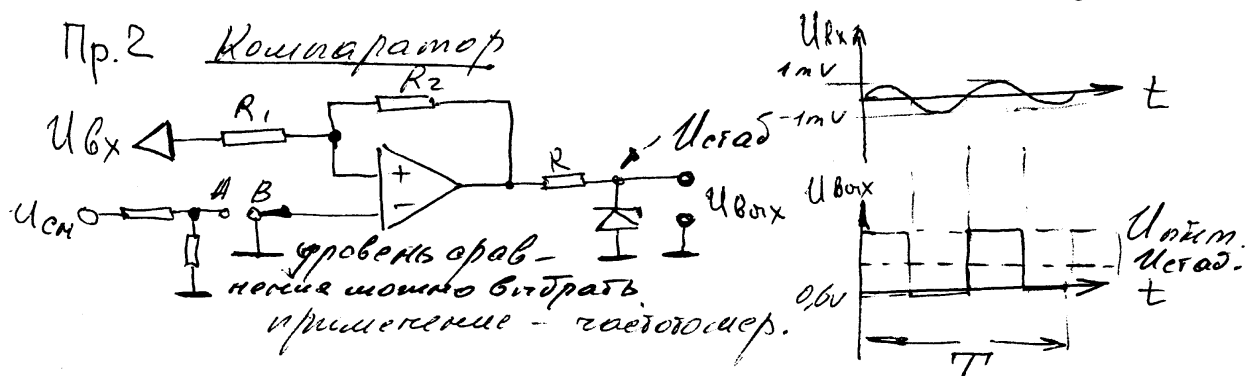 Пр.2 Компаратор
R2
R1
Uвх
+
−
Uсм
A B
R
Uстаб
Uвых
уровень срав-
нения можно выбрать
применение - частотомер.
Uвх
1mV
-1mV
t
Uвых
Uпит.
Uстаб.
0,6v
t
T